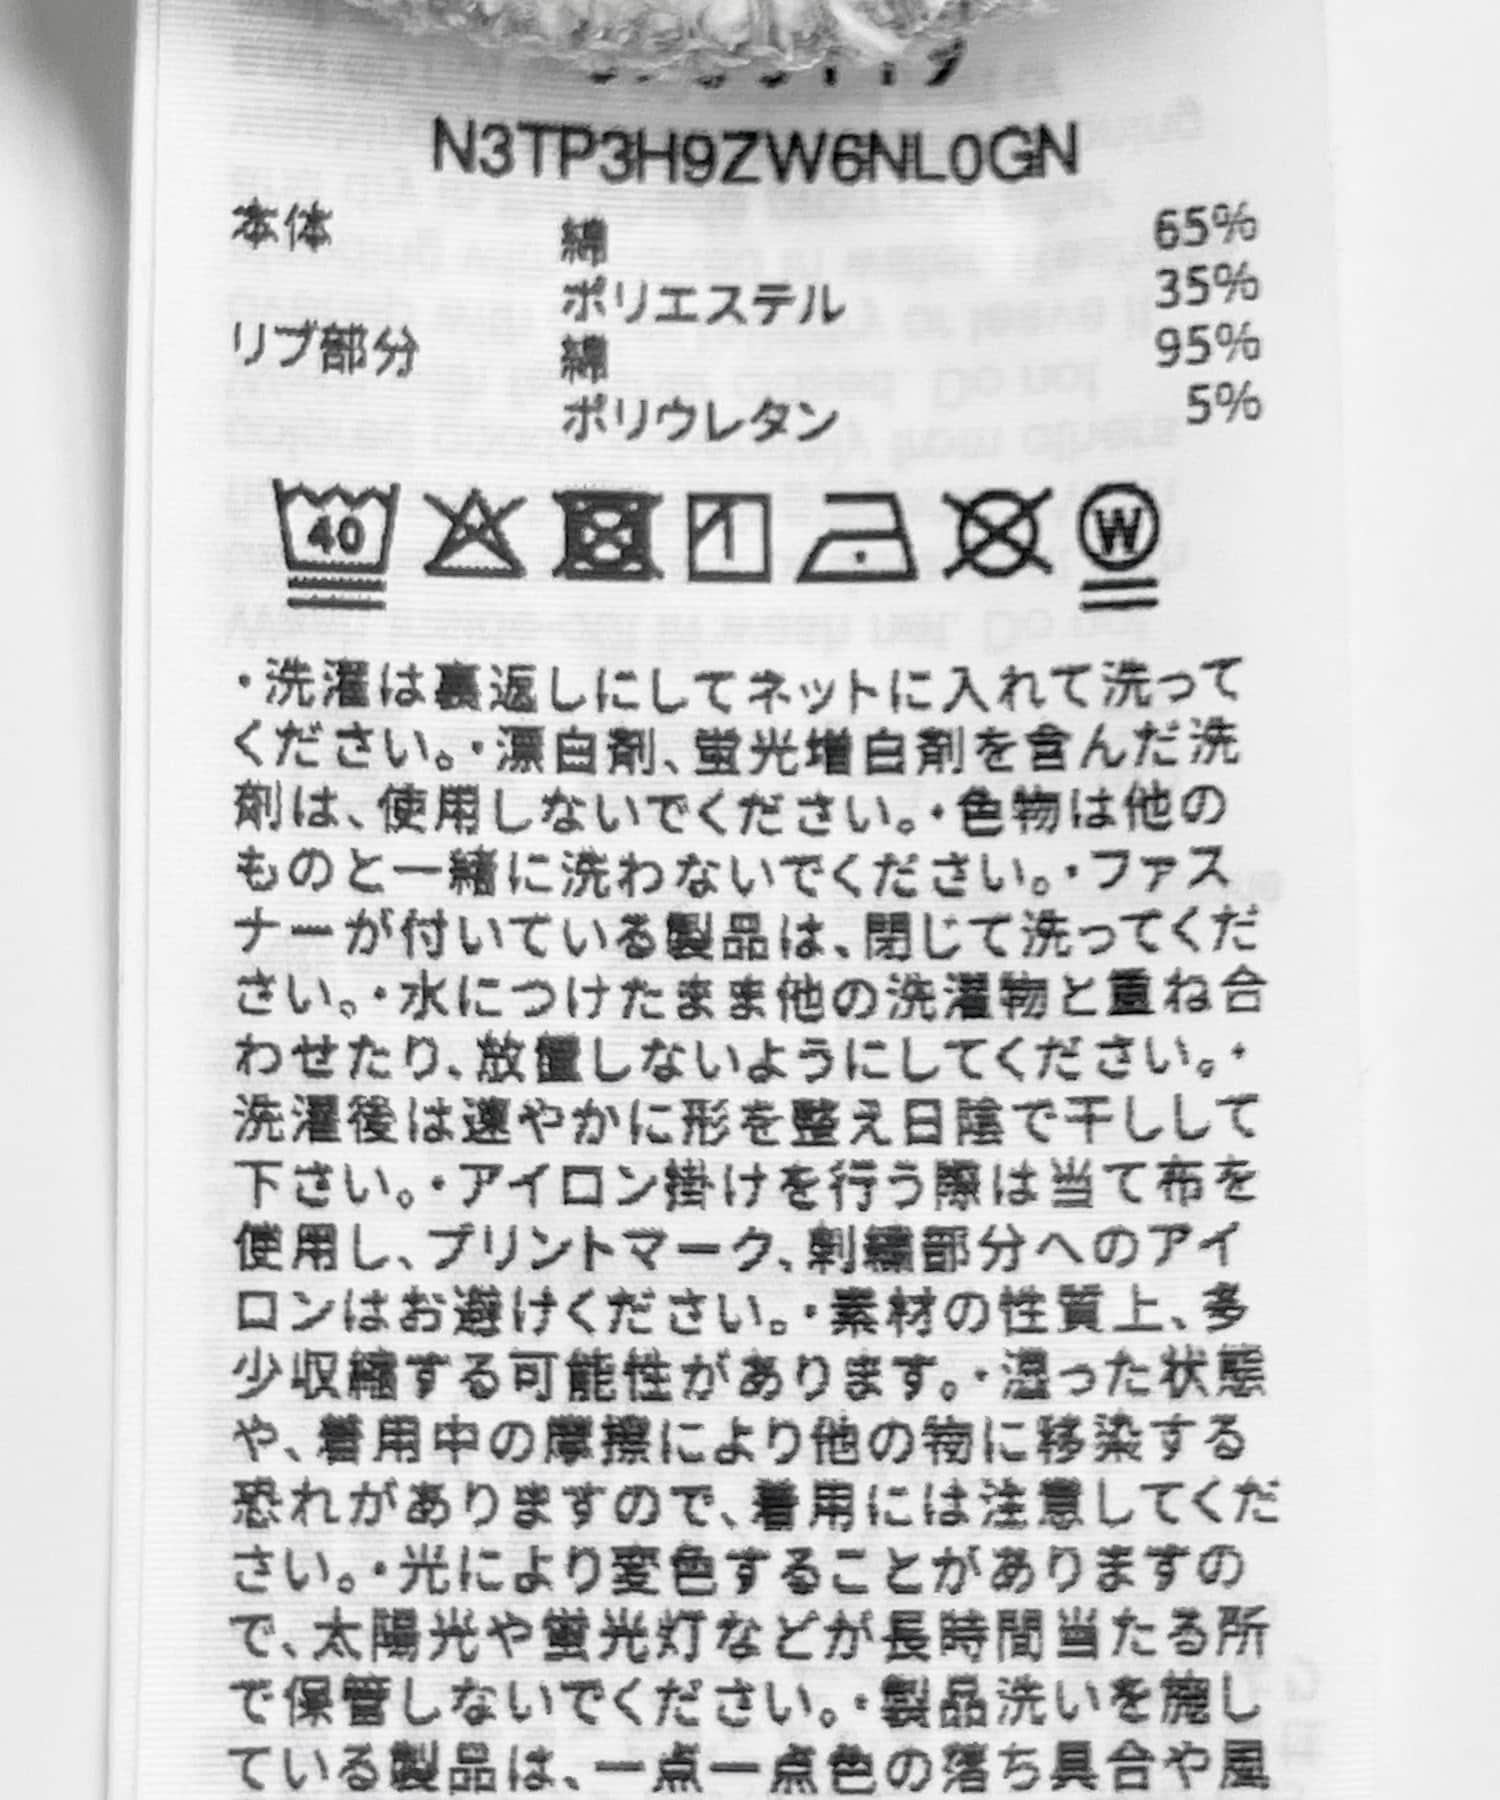 N3TP3H9ZW6NL0GN
本体 綿 65%
ポリエステル 35%
リブ部分 綿 95%
ポリウレタン 5%
40 W
・洗濯は裏返しにしてネットに入れて洗って
ください。・漂白剤、蛍光増白剤を含んだ洗
剤は、使用しないでください。・色物は他の
ものと一緒に洗わないでください。・ファス
ナーが付いている製品は、閉じて洗ってくだ
さい。・水につけたまま他の洗濯物と重ね合
わせたり、放置しないようにしてください。・
洗濯後は速やかに形を整え日陰で干しして
下さい。・アイロン掛けを行う際は当て布を
使用し、プリントマーク、刺繍部分へのアイ
ロンはお避けください。・素材の性質上、多
少収縮する可能性があります。・湿った状態
や、着用中の摩擦により他の物に移染する
恐れがありますので、着用には注意してくだ
さい。・光により変色することがありますの
で、太陽光や蛍光灯などが長時間当たる所
で保管しないでください。・製品洗いを施し
ている製品は、一点一点色の落ち具合や風